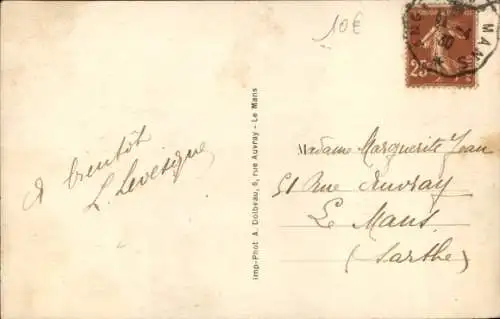 10€
MANS
30
25
A bientôt
L. Levesque
Imp-Phot A. Dolbeau, 6, rue Auvray - Le Mans
Madame Marguerite Jean
51 Rue Auvray
Le Mans
(Sarthe)